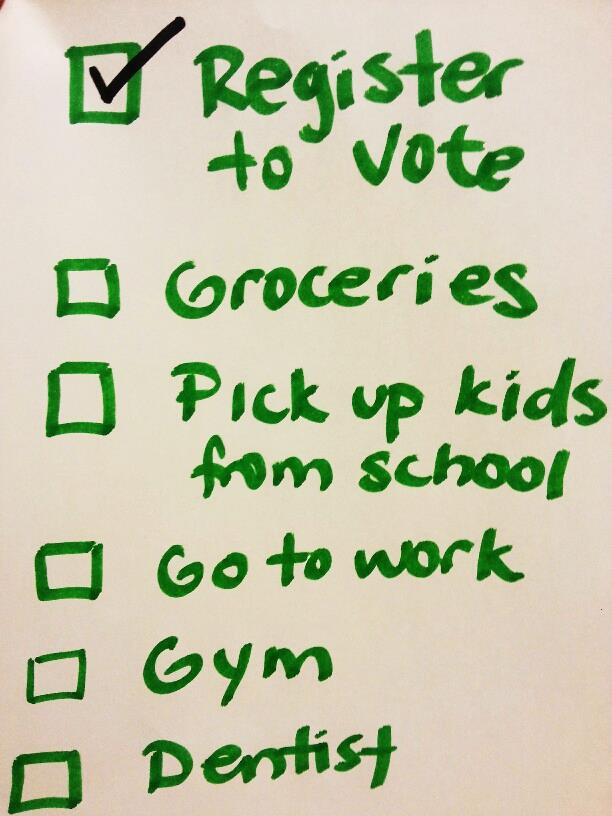 Register
to Vote
Groceries
Pick up kids
from school
Go to work
Gym
Dentist